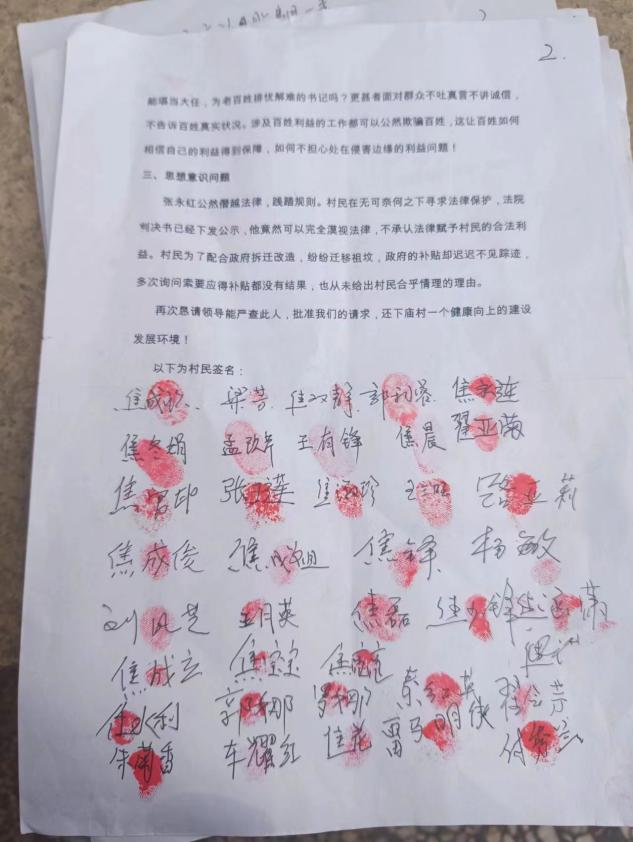 2.
能堪当大任，为老百姓排忧解难的书记吗？更甚者面对群众不吐真言不讲诚信，
不告诉百姓真实状况。涉及百姓利益的工作都可以公然欺骗百姓，这让百姓如何
相信自己的利益得到保障，如何不担心处在侵害边缘的利益问题！
三、思想意识问题
张永红公然僭越法律，践踏规则。村民在无可奈何之下寻求法律保护，法院
判决书已经下发公示，他竟然可以完全漠视法律，不承认法律赋予村民的合法利
益。村民为了配合政府拆迁改造，纷纷迁移祖坟，政府的补贴却迟迟不见踪迹，
多次询问索要应得补贴都没有结果，也从未给出村民合乎情理的理由。
再次恳请领导能严查此人，批准我们的请求，还下庙村一个健康向上的建设
发展环境！
以下为村民签名：
梁芳 焦双静
焦冬娟 王有锋 焦晨 翟亚茹
焦军印
焦成俊 焦锋 杨敏
王月英 焦磊
焦成立
郭娜
车耀红 焦花